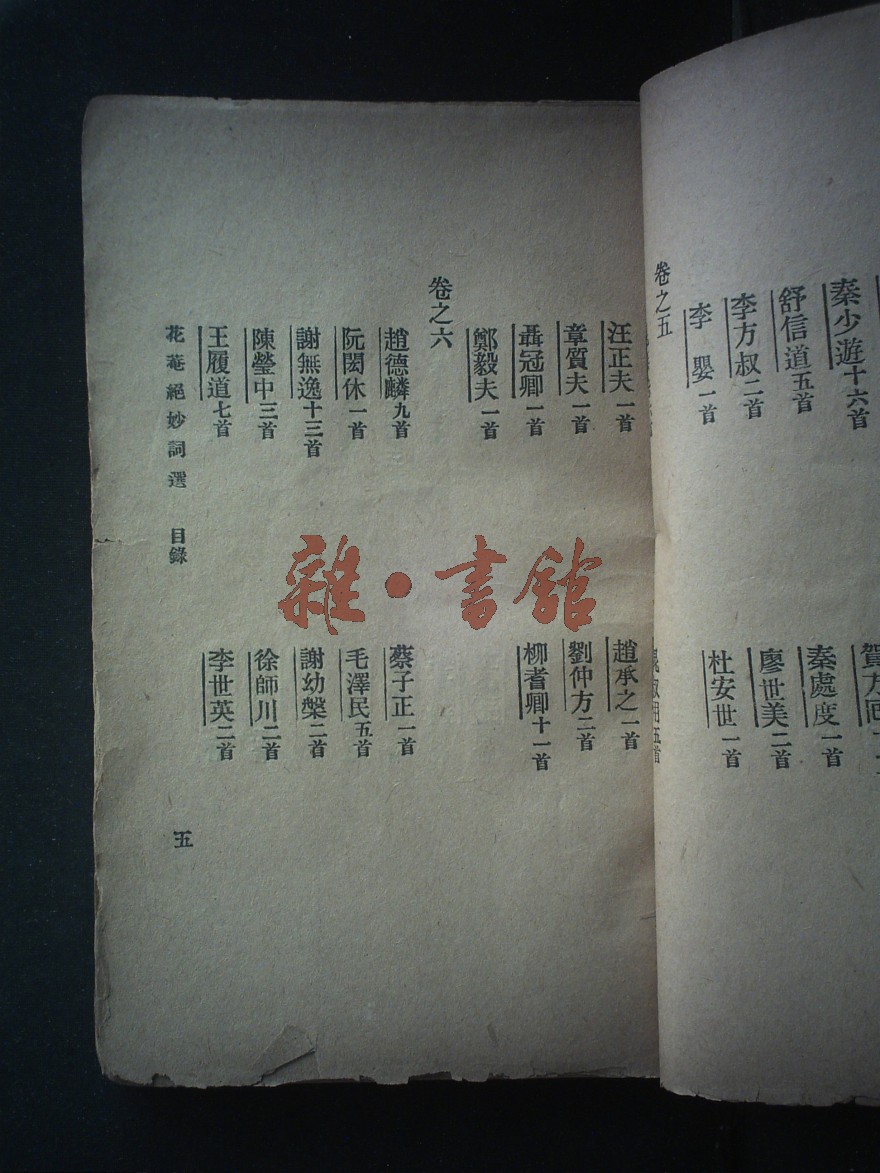 秦少游十六首
賀方回
舒信道五首
秦處度一首
李方叔二首
廖世美二首
李嬰一首
杜安世一首
卷之五
汪正夫一首
趙承之一首
章質夫一首
劉仲方二首
聶冠卿一首
柳耆卿十一首
鄭毅夫一首
卷之六
趙德麟九首
蔡子正一首
阮閱休一首
毛澤民五首
謝無逸十三首
謝幼槃二首
陳瑩中三首
徐師川二首
王履道七首
李世英二首
花菴絕妙詞選 目錄 五
雜·書館